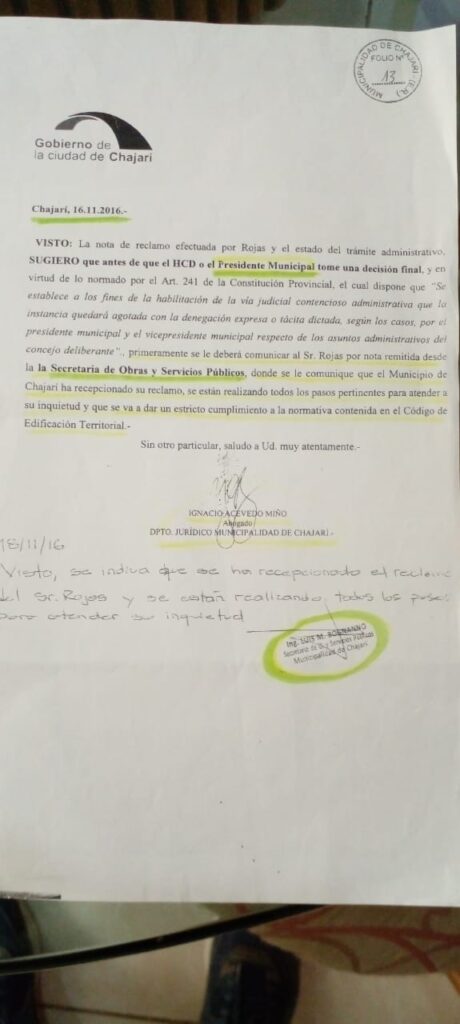 MUNICIPALIDAD DE CHAJARI (E.R.)
FOLIO Nº
13
Gobierno de
la ciudad de Chajarí
Chajarí, 16.11.2016.-
VISTO: La nota de reclamo efectuada por Rojas y el estado del trámite administrativo,
SUGIERO que antes de que el HCD o el Presidente Municipal tome una decisión final, y en
virtud de lo normado por el Art. 241 de la Constitución Provincial, el cual dispone que "Se
establece a los fines de la habilitación de la vía judicial contencioso administrativa que la
instancia quedará agotada con la denegación expresa o tácita dictada, según los casos, por el
presidente municipal y el vicepresidente municipal respecto de los asuntos administrativos del
concejo deliberante"., primeramente se le deberá comunicar al Sr. Rojas por nota remitida desde
la la Secretaria de Obras y Servicios Públicos, donde se le comunique que el Municipio de
Chajarí ha recepcionado su reclamo, se están realizando todos los pasos pertinentes para atender a
su inquietud y que se va a dar un estricto cumplimiento a la normativa contenida en el Código de
Edificación Territorial.-
Sin otro particular, saludo a Ud. muy atentamente.-
IGNACIO ACEVEDO MIÑO
Abogado
DPTO. JURÍDICO MUNICIPALIDAD DE CHAJARÍ.-
18/11/16
Visto, se indica que se ha recepcionado el reclamo
del Sr. Rojas y se están realizando todos los pasos
para atender su inquietud
Ing. LUIS M.
Secretario de Os. y Servicios Públicos
Municipalidad de Chajarí